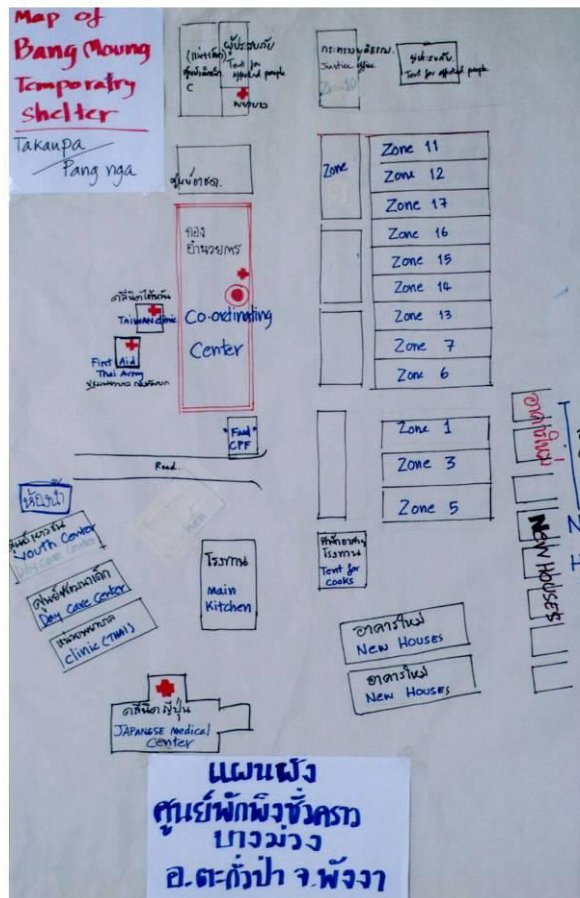 Map of
Bang Moung
Temporatry
Shelter
Takaupa
Pang nga
C
ผู้ประสบภัย
Tent for
affected people
พยาบาล
กระทรวงยุติธรรม
Justice office
Tent for affected people
Zone
Zone 11
Zone 12
Zone 17
Zone 16
Zone 15
Zone 14
Zone 13
Zone 7
Zone 6
กอง
อำนวยการ
Co-ordinating
Center
คลีนิคไต้หวัน
TAIWAN clinic
First Aid
Thai Army
"Food"
CPF
Road.
Zone 1
Zone 3
Zone 5
อาคารใหม่
NEW HOUSES
ห้องน้ำ
ศูนย์เยาวชน
Youth Center
Day Care Center
ศูนย์พัฒนาเด็ก
Day Care Center
หน่วยพยาบาล
Clinic (THAI)
โรงทาน
Main
Kitchen
โรงทาน
Tent for
cooks
อาคารใหม่
New Houses
อาคารใหม่
New Houses
คลีนิคญี่ปุ่น
JAPANESE Medical
Center
แผนผัง
ศูนย์พักพิงชั่วคราว
บางม่วง
อ.ตะกั่วป่า จ.พังงา